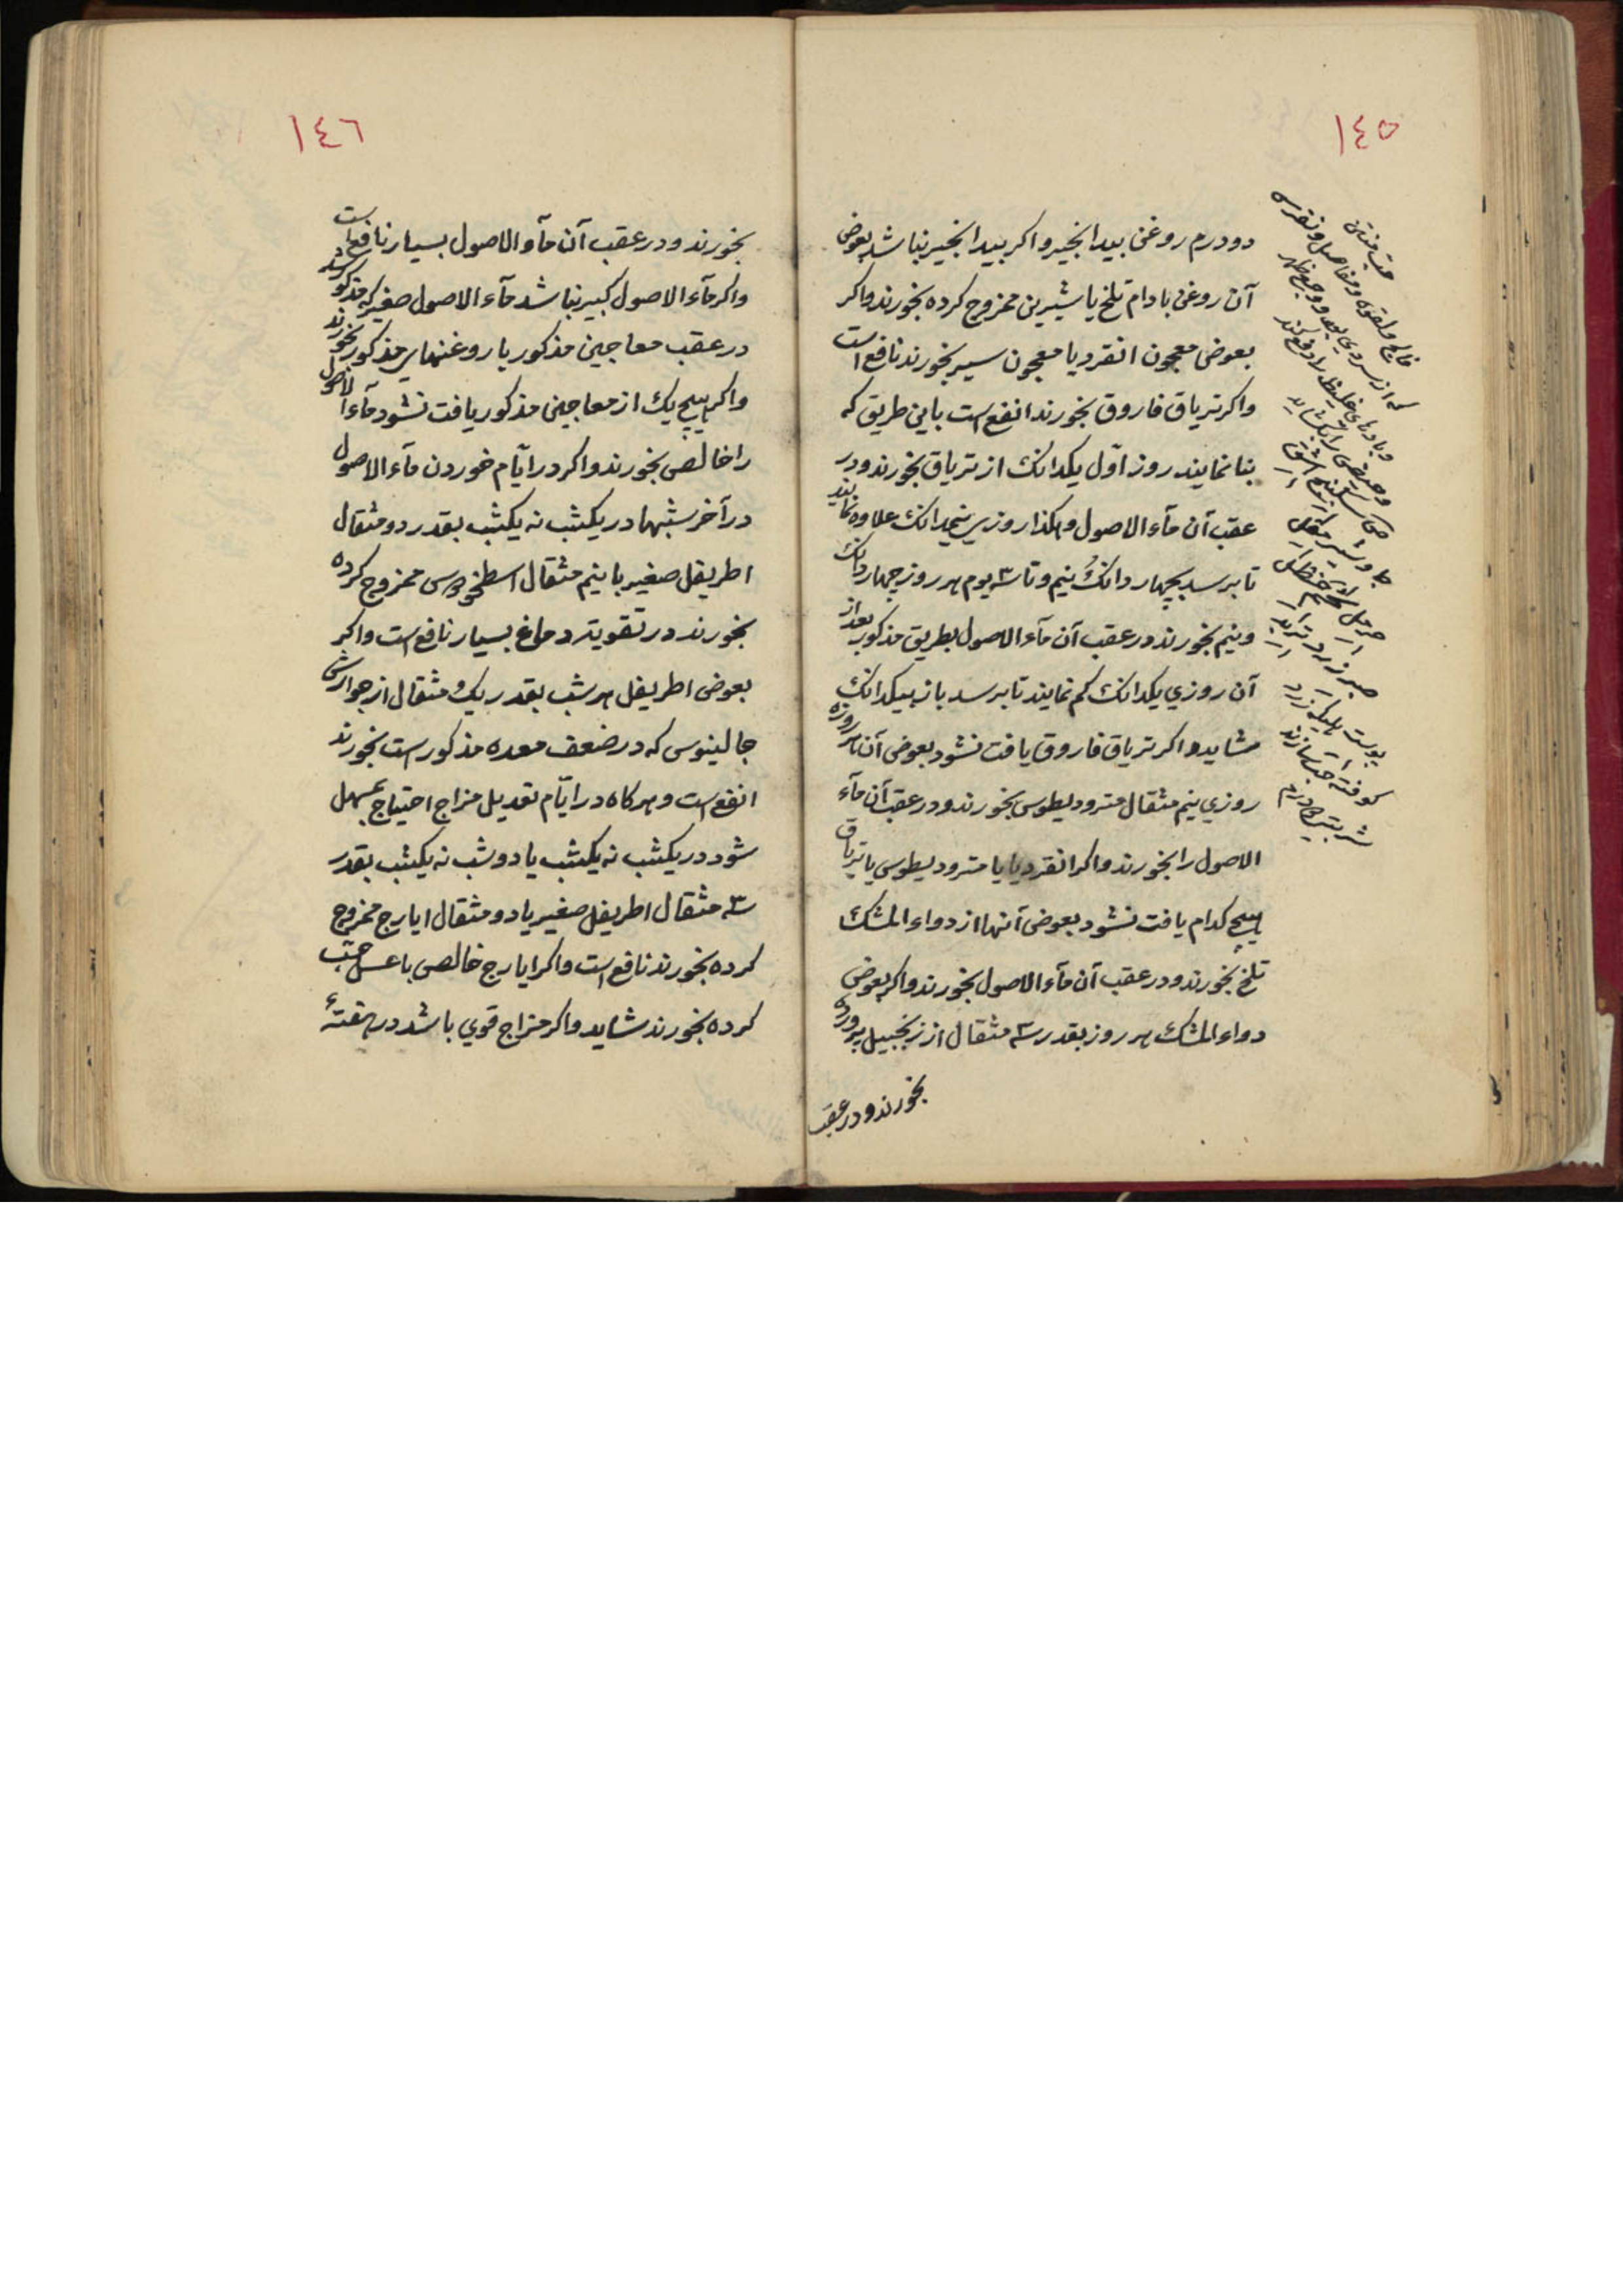 ١٤٥
دو درم روغن بیدانجیر و اکر بیدانجیر نباشد بعوض
آن روغن بادام تلخ یا شیرین ممزوج کرده بخورند و اکر
بعوض معجون انقردیا معجون سیر بخورند نافع است
و اکر تریاق فاروق بخورند انفع است باین طریق که
بنا نمایند روز اول یکدانک از تریاق بخورند و در
عقب آن مآء الاصول و هکذا روزی نیمدانک علاوه نمایند
تا برسد بچهار دانک و نیم و تا ۳ یوم هر روز چهار دانک
و نیم بخورند و در عقب آن مآء الاصول بطریق مذکور بعد از
آن روزی یکدانک کم نمایند تا برسد باز بیکدانک
شاید و اکر تریاق فاروق یافت نشود بعوض آن هر روزه
روزی نیم مثقال مترودیطوس بخورند و در عقب آن مآء
الاصول را بخورند و اکر انقردیا یا مترودیطوس یا تریاق
هیچ کدام یافت نشود بعوض آنها از دواء المشک
تلخ بخورند و در عقب آن مآء الاصول بخورند و اکر بعوض
دواء المشک هر روز بقدر سه مثقال از زنجبیل پرورده
بخورند و در عقب
حب منتن
فالج و لقوه و مفاصل و نقرس
که از سردی بود و وجع ظهر
و بادهای غلیظ را دفع کند
و حیض را بکشاید
جاوشیر مقل
حرمل شحم حنظل
صبر زرد تربد
پوست هلیله زرد
کوفته حب سازند
شربتی درم
١٤٦
بخورند و در عقب آن مآء الاصول بسیار نافع است
و اکر مآء الاصول کبیر نباشد مآء الاصول صغیر که مذکور شد
در عقب معاجین مذکور یا روغنهای مذکور بخورند
و اکر هیچ یک از معاجین مذکور یافت نشود مآء الاصول
را خالص بخورند و اکر در ایّام خوردن مآء الاصول
در آخر شبها در یکشب نه یکشب بقدر دو مثقال
اطریفل صغیر با نیم مثقال اسطخودوس ممزوج کرده
بخورند در تقویت دماغ بسیار نافع است و اکر
بعوض اطریفل هر شب بقدر یک مثقال از جوارش
جالینوس که در ضعف معده مذکور است بخورند
انفع است و هر کاه در ایّام تعدیل مزاج احتیاج بمسهل
شود در یکشب نه یکشب یا دو شب نه یکشب بقدر
سه مثقال اطریفل صغیر یا دو مثقال ایارج ممزوج
کرده بخورند نافع است و اکر ایارج خالص با عسل حب
کرده بخورند شاید و اکر مزاج قوی باشد در هفتهٔ